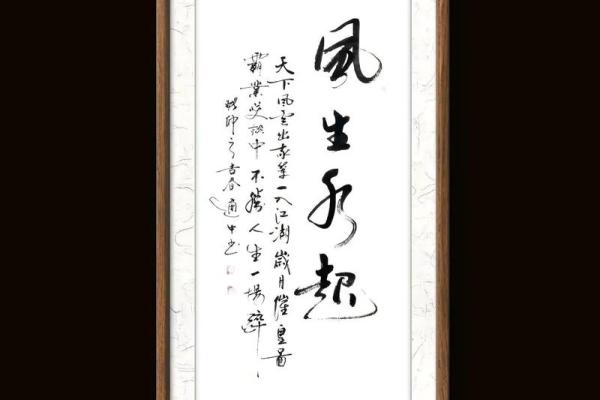 風生水起
天下風雲出我輩一入江湖歲月催皇圖
霸業笑談中不勝人生一場醉
癸卯之吉春通中书